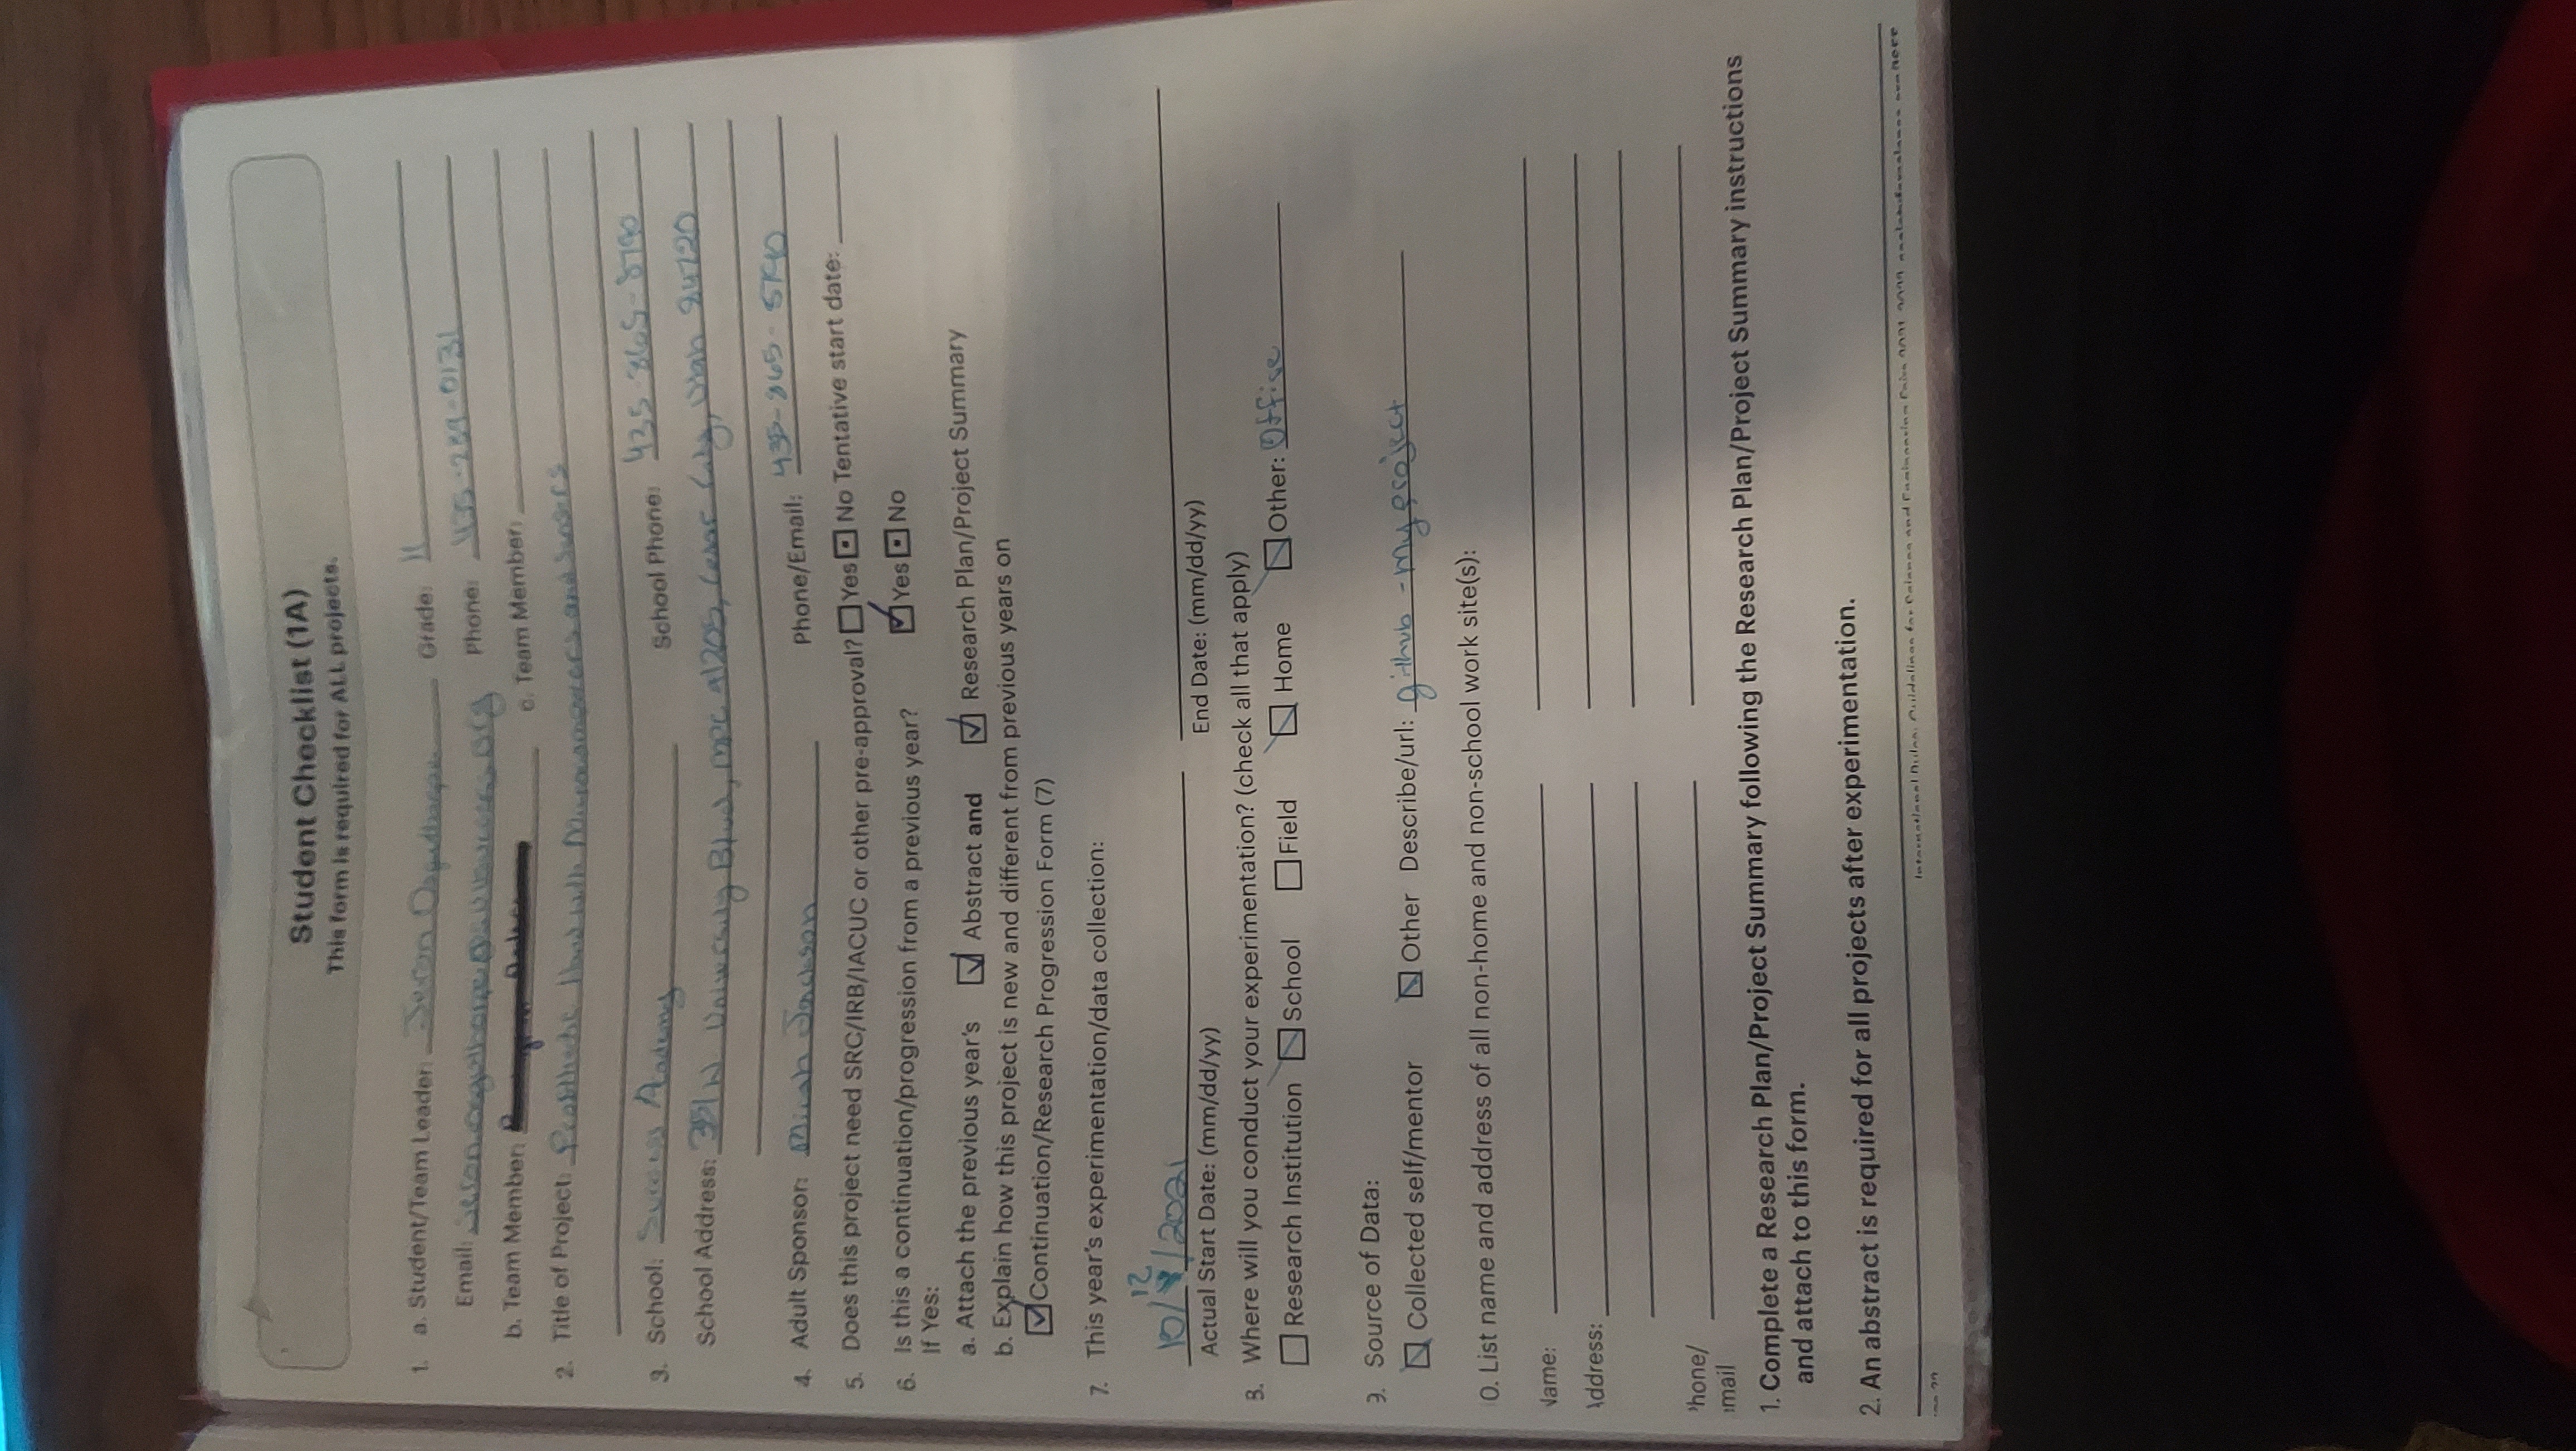 Student Checklist (1A)
This form is required for ALL projects.
1. a. Student/Team Leader: Jeron Osguthorpe Grade: 11
Email: Phone: 435-289-0131
b. Team Member: c. Team Member:
2. Title of Project: Prosthetic Hand with Microcomputers and Sensors
3. School: Success Academy School Phone: 435-865-8790
School Address: 351 W. University Blvd, MPC #1205, Cedar City, Utah 84720
4. Adult Sponsor: Micah Jackson Phone/Email: 435-865-5790
5. Does this project need SRC/IRB/IACUC or other pre-approval? Yes No Tentative start date:
6. Is this a continuation/progression from a previous year? Yes No
If Yes:
a. Attach the previous year's Abstract and Research Plan/Project Summary
b. Explain how this project is new and different from previous years on
Continuation/Research Progression Form (7)
7. This year's experimentation/data collection:
12
10/ /2021
Actual Start Date: (mm/dd/yy) End Date: (mm/dd/yy)
8. Where will you conduct your experimentation? (check all that apply)
Research Institution School Field Home Other: Office
9. Source of Data:
Collected self/mentor Other Describe/url: github - my project
0. List name and address of all non-home and non-school work site(s):
Name:
Address:
Phone/
mail
1. Complete a Research Plan/Project Summary following the Research Plan/Project Summary instructions
and attach to this form.
2. An abstract is required for all projects after experimentation.
International Rules: Guidelines for Science and Engineering Fairs 2021-2022